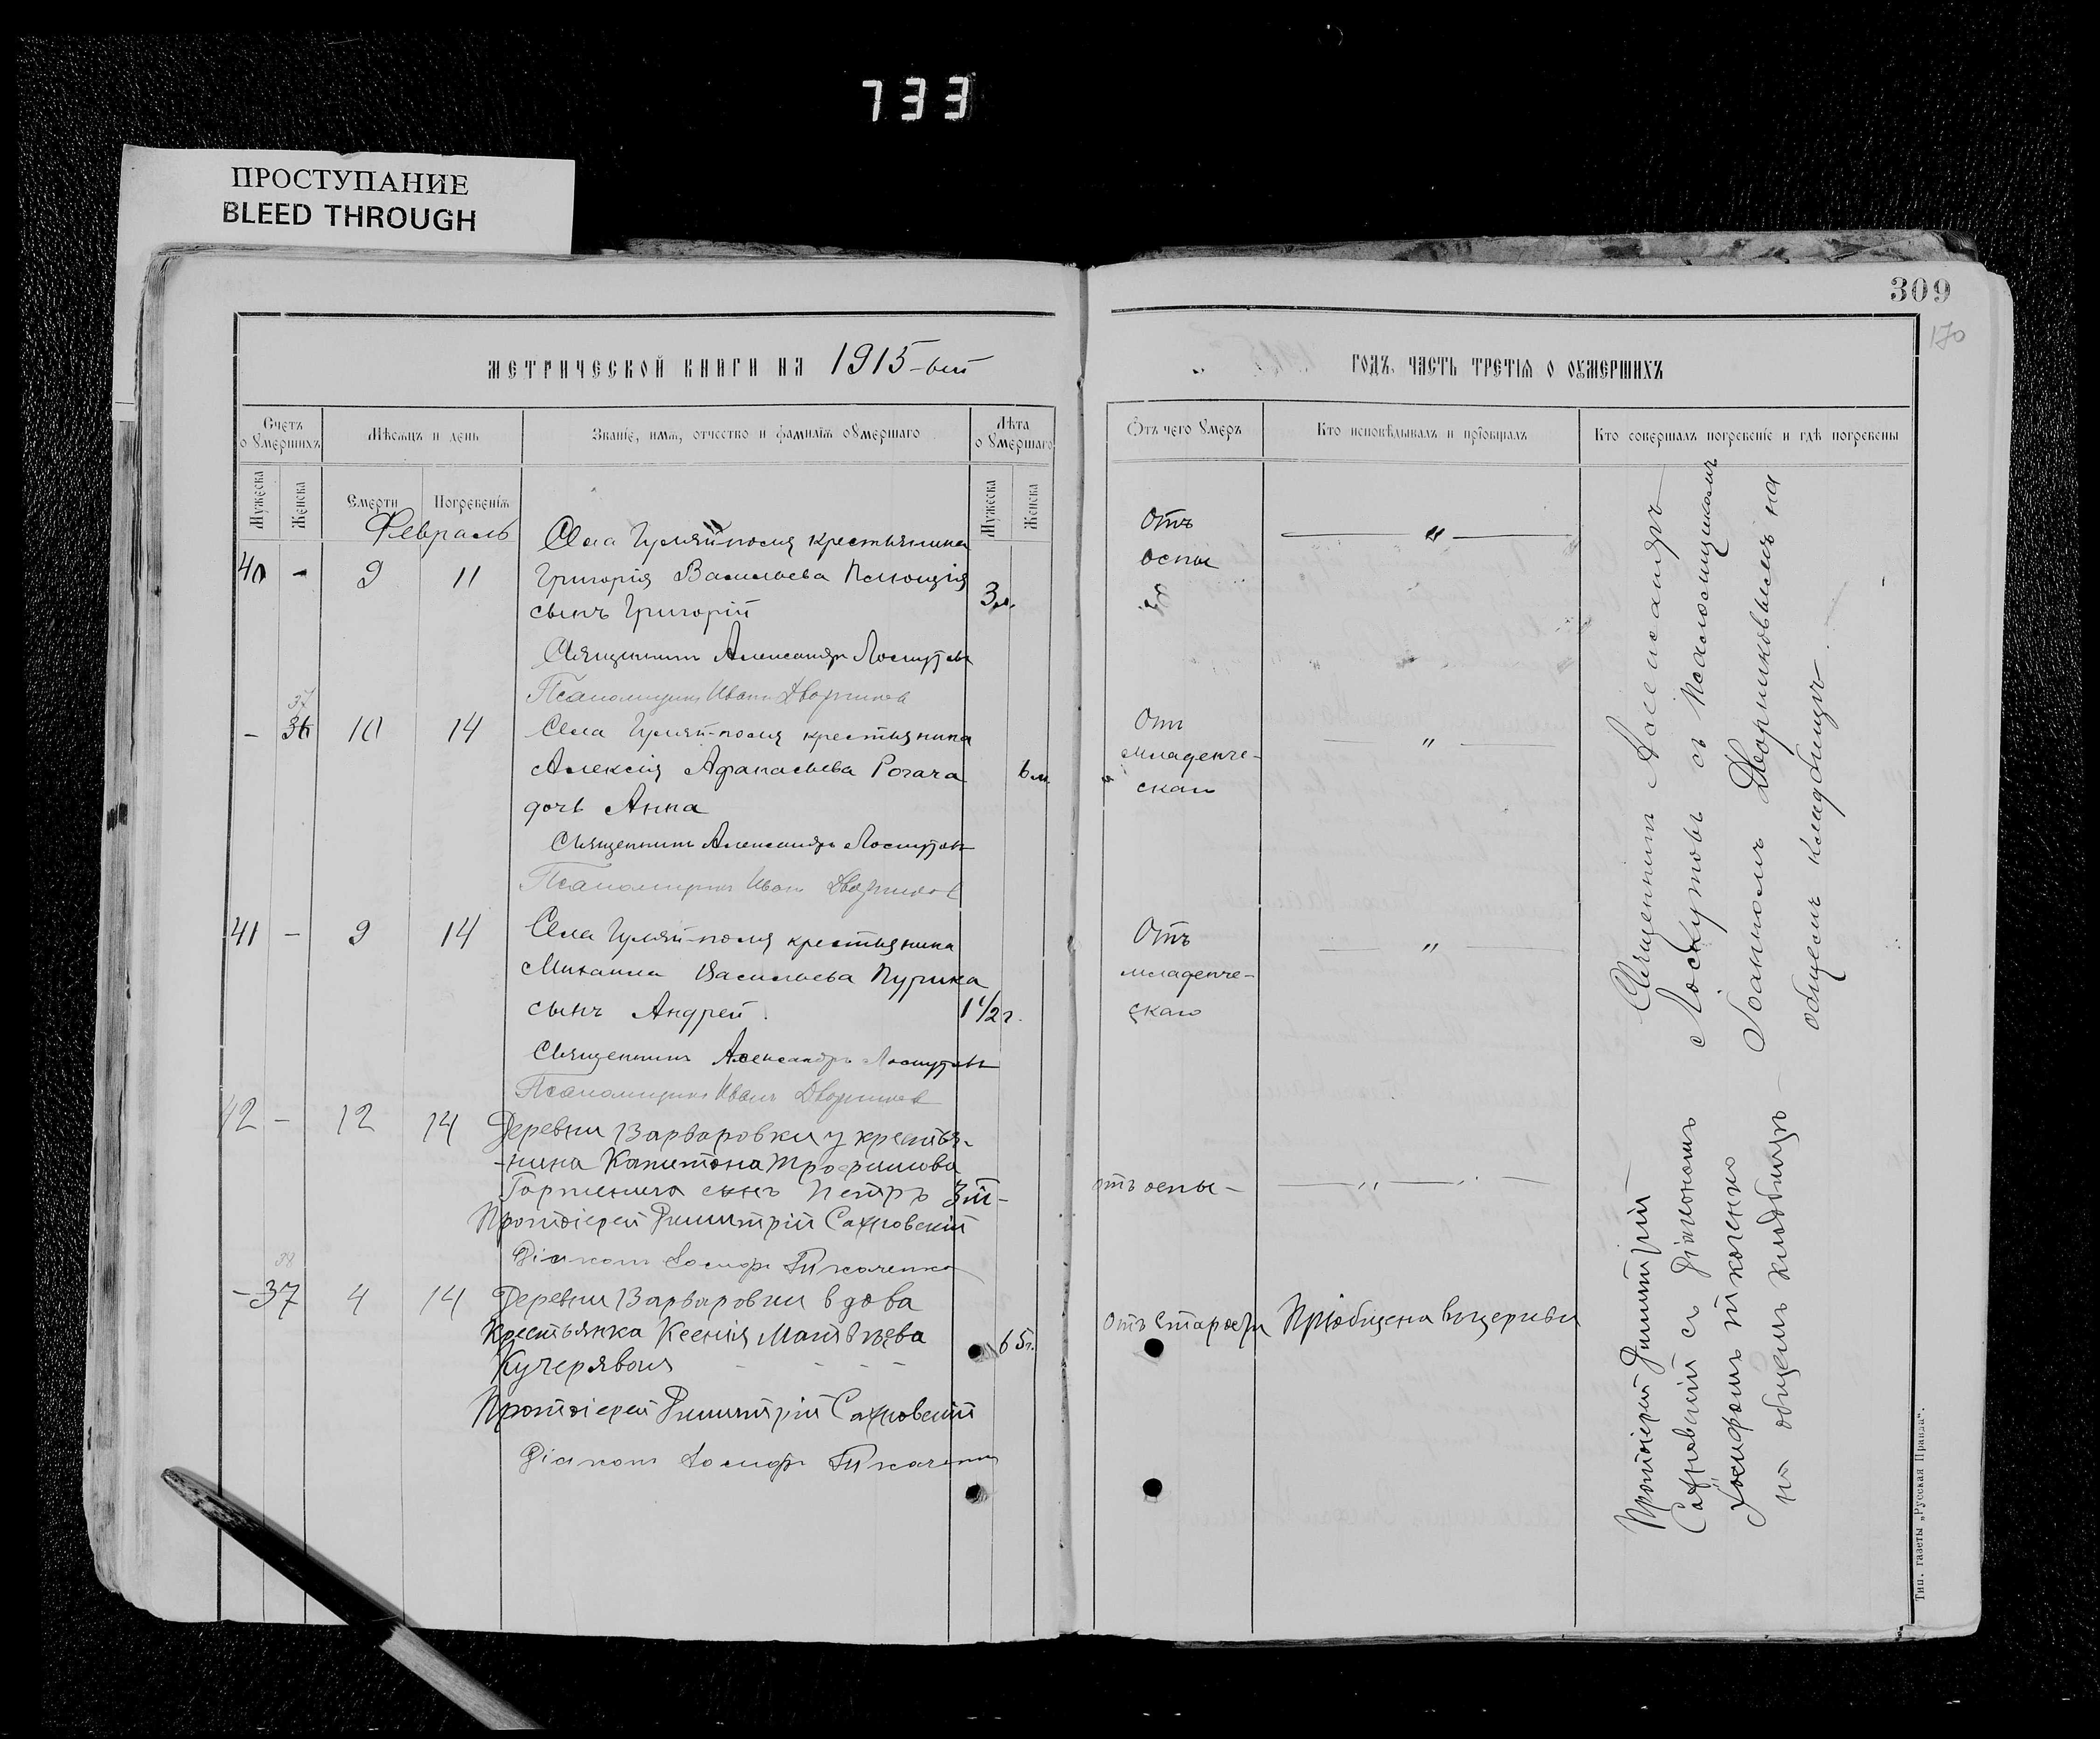 733
ПРОСТУПАНИЕ
BLEED THROUGH
309
170
МЕТРИЧЕСКОЙ КНИГИ НА 1915-ый
ГОДЪ, ЧАСТЬ ТРЕТІѦ О ОУМЕРШИХЪ
Счетъ о Умершихъ
Мѣсяцъ и день
Званіе, имѧ, отчество и фамиліѧ оУмершаго
Лѣта о Умершаго
Отъ чего Умеръ
Кто исповѣдывалъ и пріобщалъ
Кто совершалъ погребеніе и гдѣ погребены
Мужеска
Женска
Смерти
Погребеніѧ
Мужеска
Женска
Февраль
40 - 9 11
Села Гуляй-поля крестьянина
Григорія Васильева
сынъ Григорій
3 м.
Отъ
оспы
"
Священникъ Александръ Лоскутовъ
Псаломщикъ Иванъ Дворников
37
- 36 10 14
Села Гуляй-поля крестьянина
Алексія Афанасьева Рогача
дочь Анна
6 м.
Отъ
младенче-
скаго
"
Священникъ Александръ Лоскутовъ
Псаломщикъ Иванъ Дворников
41 - 9 14
Села Гуляй-поля крестьянина
Михаила Васильева Пурика
сынъ Андрей.
1 1/2 г.
Отъ
младенче-
скаго
"
Священникъ Александръ Лоскутовъ
Псаломщикъ Иванъ Дворников
42 - 12 14
Деревни Варваровки у крестья-
-нина Капитона Трофимова
сынъ Петръ
отъ оспы -
"
Протоіерей Димитрій Сахновскій
Діаконъ Іосифъ Ткаченко
38
- 37 4 14
Деревни Варваровки вдова
Крестьянка Ксенія Матвѣева
Кучерявая
65 г.
отъ старости
Пріобщена въ церкви
Протоіерей Димитрій Сахновскій
Діаконъ Іосифъ Ткаченко
Священникъ Александръ
Лоскутовъ съ Псаломщикомъ
Іоанномъ Дворниковымъ на
общемъ кладбищѣ
Протоіерей Димитрій
Сахновскій съ Діакономъ
Іосифомъ Ткаченко
на общемъ кладбищѣ
Тип. газеты „Русская Правда".